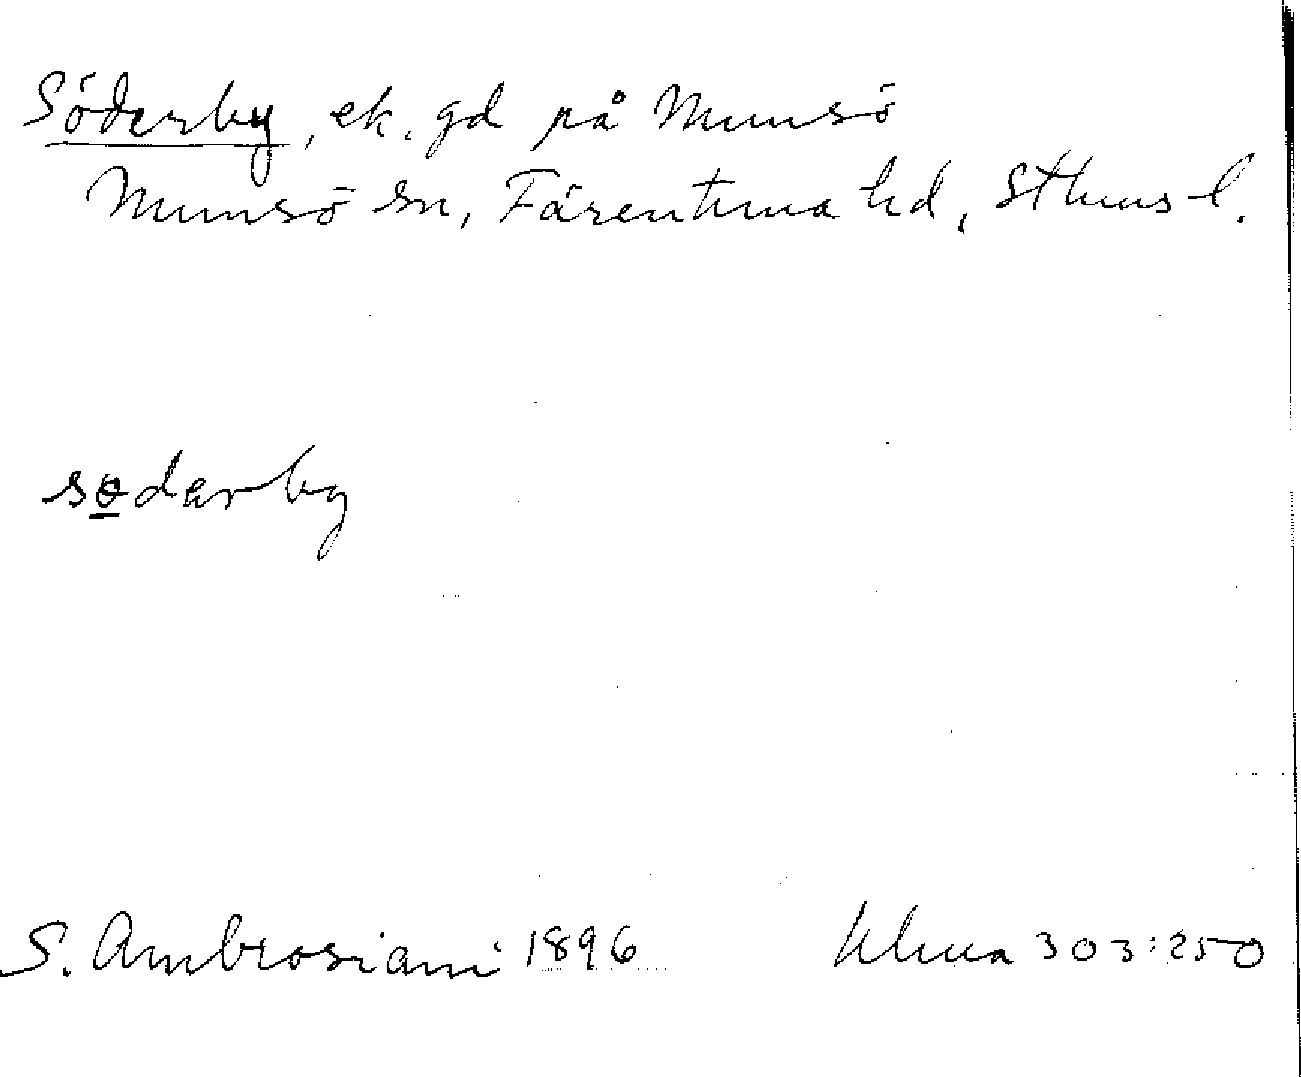 Söderby, ek. gd på Munsö
Munsö sn, Färentuna hd, Sthms l.
sødərby
S. Ambrosiani 1896 Ulma 303:250